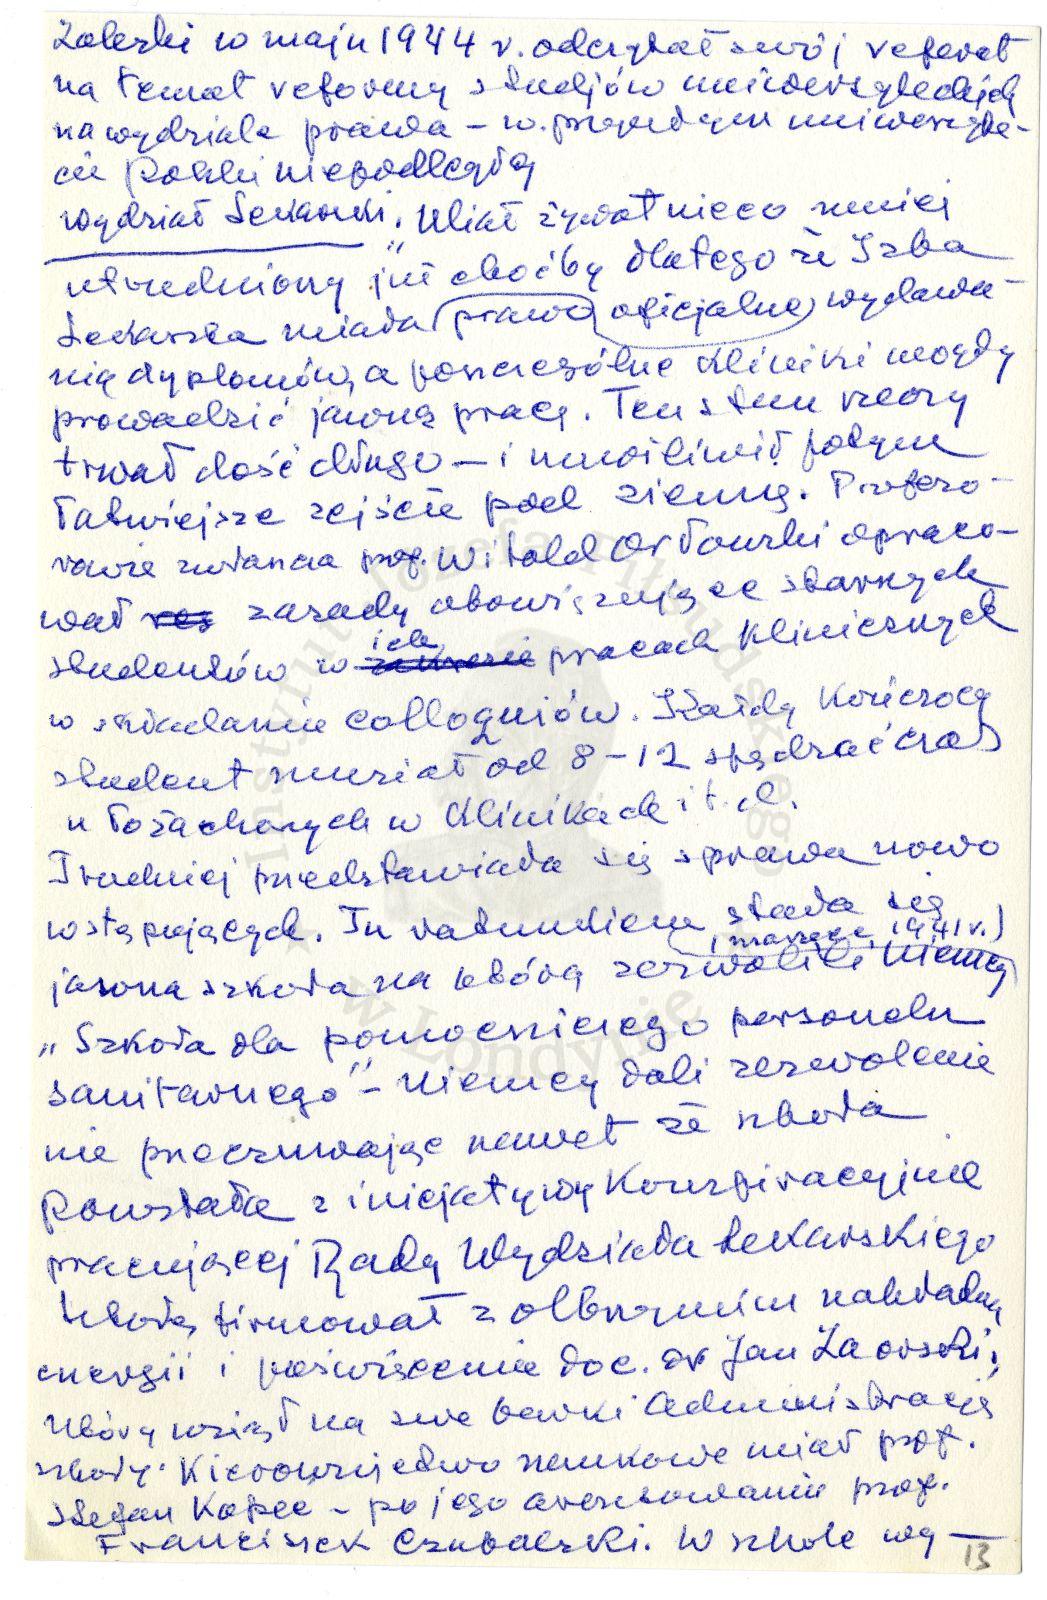 Zaleski w maju 1944 r. odczytał swój referat
na temat reformy studjów uniwersyteckich
na wydziale prawa – w przyszłym uniwersyte-
cie Polski niepodległej
wydział Lekarski. Miał żywot nieco mniej
utrudniony już choćby dlatego że Izba
Lekarska miała prawo oficjalne wydawa-
nia dyplomów, a poszczególne kliniki mogły
prowadzić jawną pracę. Ten stan rzeczy
trwał dość długo – i umożliwił potym
łatwiejsze zejście pod ziemię. Profeso-
rowie zwłaszcza prof. Witold Orłowski opraco-
wał zasady obowiązujące starszych
studentów w ich pracach klinicznych
w składaniu colloquiów. Każdy kończący
student musiał od 8–12 spędzać czas
u łoża chorych w klinikach i t. d.
Trudniej przedstawiała się sprawa nowo
wstępujących. Tu ratunkiem stała się
(marzec 1941 r.)
jawna szkoła na którą zezwolili Niemcy
„Szkoła dla pomocniczego personelu
sanitarnego” – Niemcy dali zezwolenie
nie przeczuwając nawet że szkoła
powstała z inicjatywy konspiracyjnie
pracującej Rady Wydziału Lekarskiego
szkołę firmował z olbrzymim nakładem
energii i poświęcenia doc. dr Jan Zaorski,
który wziął na swe barki administrację
szkoły. Kierownictwo naukowe miał prof.
Stefan Kopeć – po jego aresztowaniu prof.
Franciszek Czubalski. W szkole wy–
13
Instytut Józefa Piłsudskiego
w Londynie